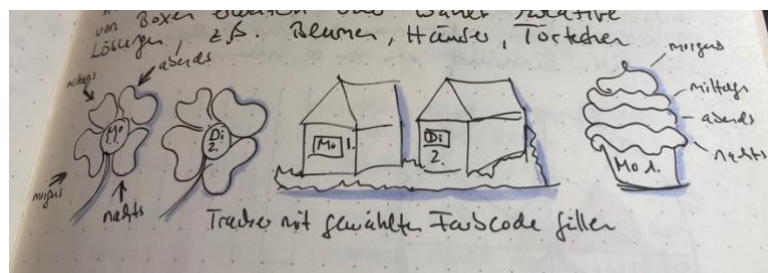 von Boxen
Lösungen, z.B. Blumen, Häuser, Törtchen
mittags
abends
morgens
nachts
Mo
1.
Di
2.
Mo 1.
Di
2.
morgens
mittags
abends
nachts
Mo 1.
Tracker mit gewählten Farbcode füllen